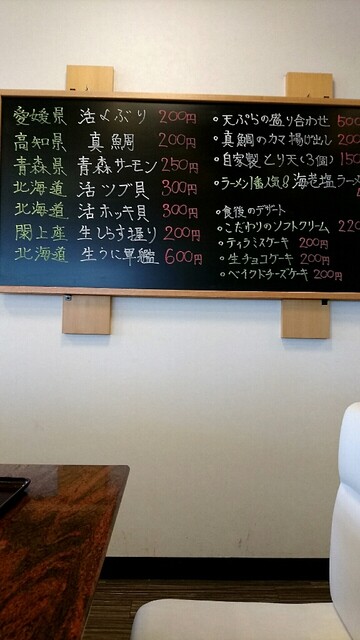 愛媛県 活〆ぶり 200円
高知県 真鯛 200円
青森県 青森サーモン 250円
北海道 活ツブ貝 300円
北海道 活ホッキ貝 300円
閖上産 生しらす握り 200円
北海道 生うに軍艦 600円
天ぷらの盛り合わせ 500
真鯛のカマ揚げ出し 200
自家製とり天(3個) 150
ラーメン1番人気!! 海老塩ラーメ
食後のデザート
こだわりのソフトクリーム 220
ティラミスケーキ 200円
生チョコケーキ 200円
ベイクドチーズケーキ 200円